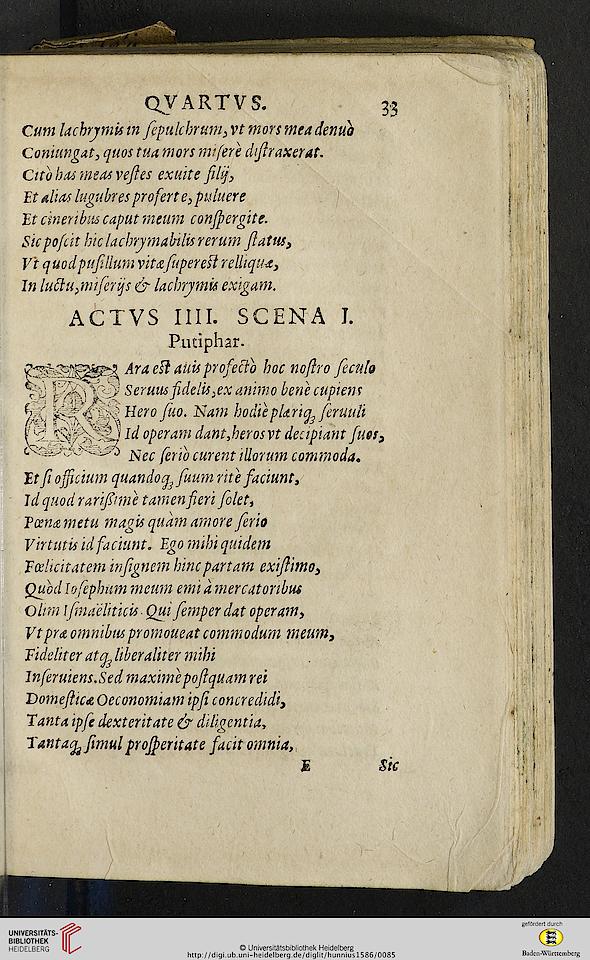 QVARTVS. 33
Cum lachrymis in ſepulchrum, vt mors mea denuò
Coniungat, quos tua mors miſerè diſtraxerat.
Citò has meas veſtes exuite filij,
Et alias lugubres proferte, puluere
Et cineribus caput meum conſpergite.
Sic poſcit hic lachrymabilis rerum ſtatus,
Vt quod puſillum vitæ ſupereſt relliquæ,
In luctu, miſerijs & lachrymis exigam.
ACTVS IIII. SCENA I.
Putiphar.
RAra eſt auis profectò hoc noſtro ſeculo
Seruus fidelis, ex animo benè cupiens
Hero ſuo. Nam hodiè pleriq; ſeruuli
Id operam dant, heros vt decipiant ſuos,
Nec ſeriò curent illorum commoda.
Et ſi officium quandoq; ſuum ritè faciunt,
Id quod rarißimè tamen fieri ſolet,
Pœnæ metu magis quàm amore ſerio
Virtutis id faciunt. Ego mihi quidem
Fœlicitatem inſignem hinc partam exiſtimo,
Quòd Ioſephum meum emi à mercatoribus
Olim Iſmaëliticis. Qui ſemper dat operam,
Vt præ omnibus promoueat commodum meum,
Fideliter atq; liberaliter mihi
Inſeruiens. Sed maximè poſtquam rei
Domeſticæ Oeconomiam ipſi concredidi,
Tanta ipſe dexteritate & diligentia,
Tantaq; ſimul proſperitate facit omnia,
E Sic
UNIVERSITÄTS-
BIBLIOTHEK
HEIDELBERG
© Universitätsbibliothek Heidelberg
http://digi.ub.uni-heidelberg.de/diglit/hunnius1586/0085
gefördert durch
Baden-Württemberg